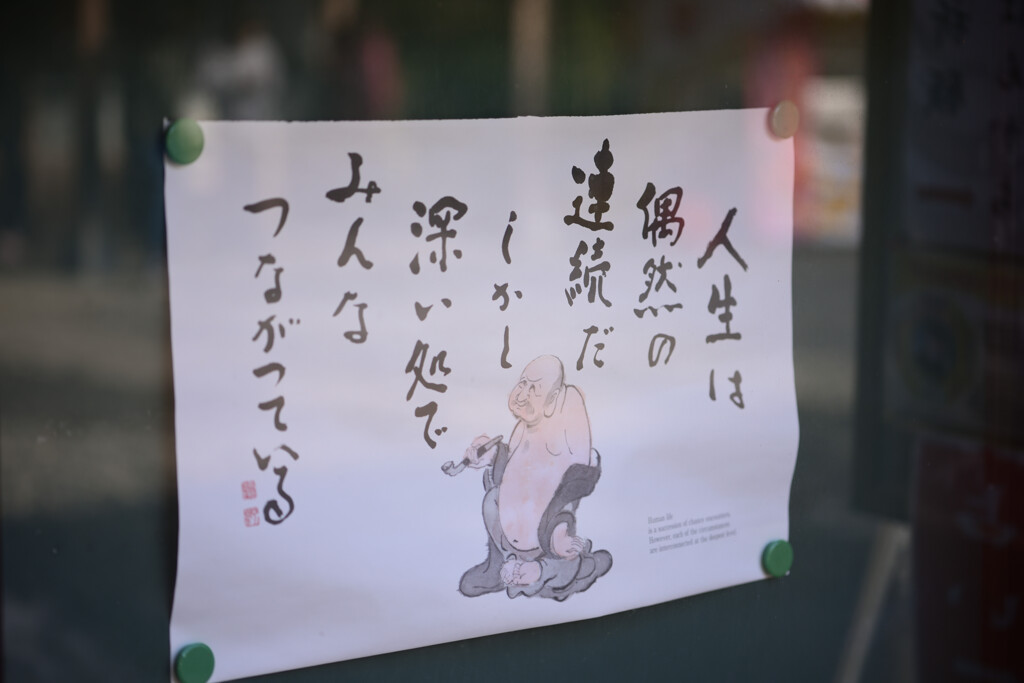 人生は
偶然の
連続だ
しかし
深い処で
みんな
つながっている
Human life
is a succession of chance encounters.
However, each of the circumstances
are interconnected at the deepest level.